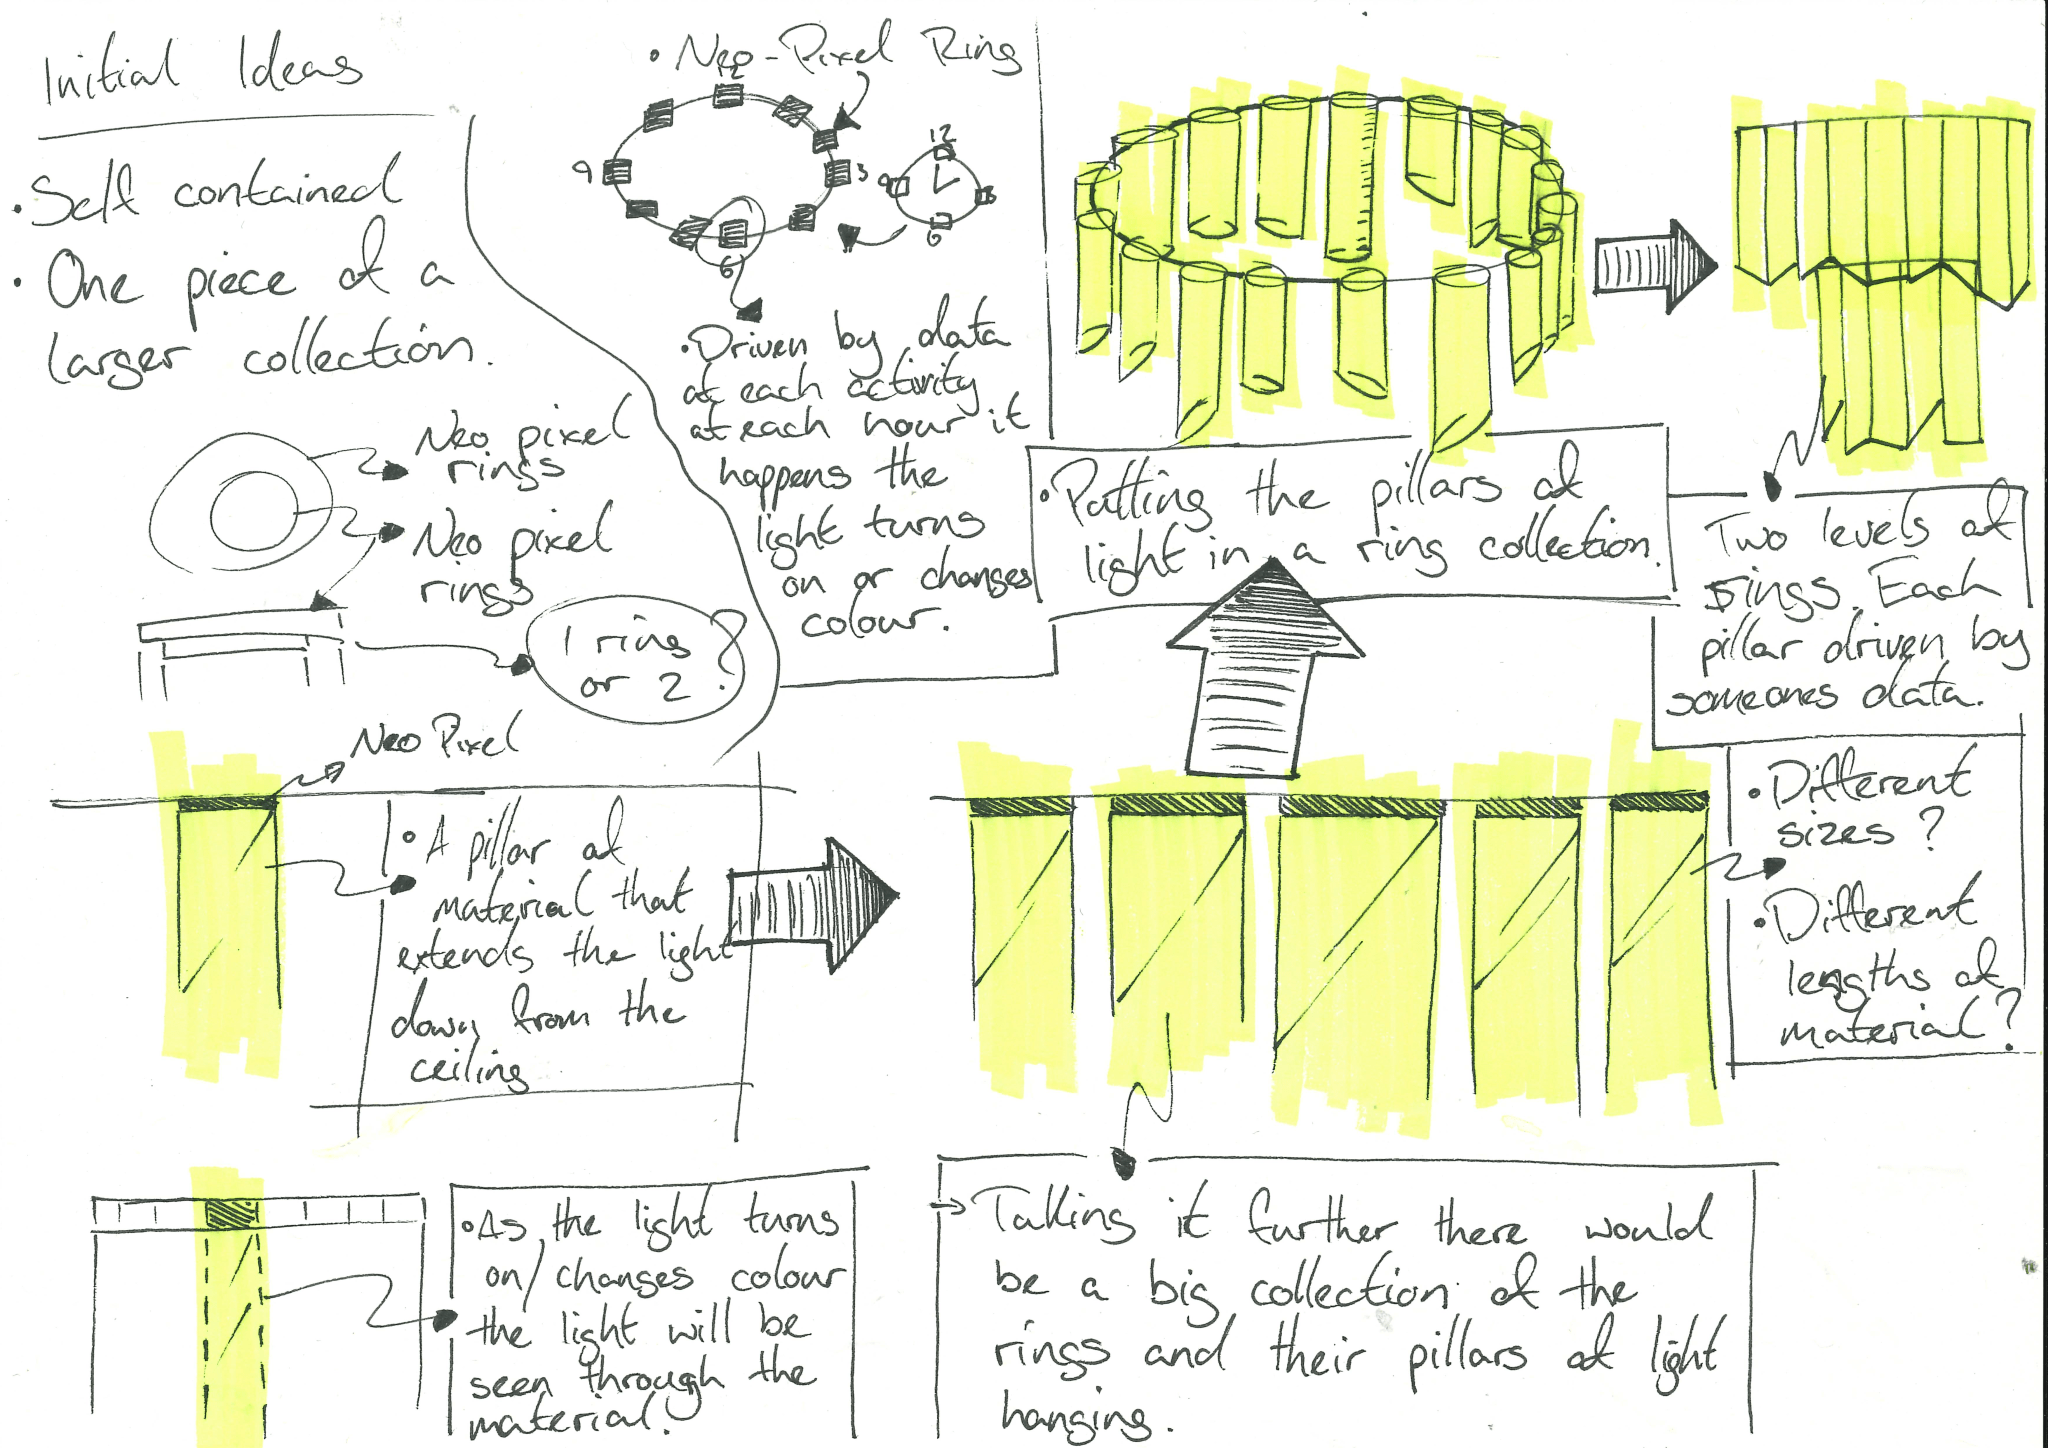 Initial Ideas
• Self contained
• One piece of a
larger collection.
Neo pixel
rings
Neo pixel
rings
1 ring ?
or 2
• Neo-Pixel Ring
12
9
3
6
12
9
3
6
• Driven by data
of each activity
at each hour it
happens the
light turns
on or changes
colour.
• Putting the pillars of
light in a ring collection.
Two levels of
rings. Each
pillar driven by
someones data.
Neo Pixel
• A pillar of
material that
extends the light
down from the
ceiling
• Different
sizes?
• Different
lengths of
material?
• As the light turns
on/changes colour
the light will be
seen through the
material.
→ Taking it further there would
be a big collection of the
rings and their pillars of light
hanging.